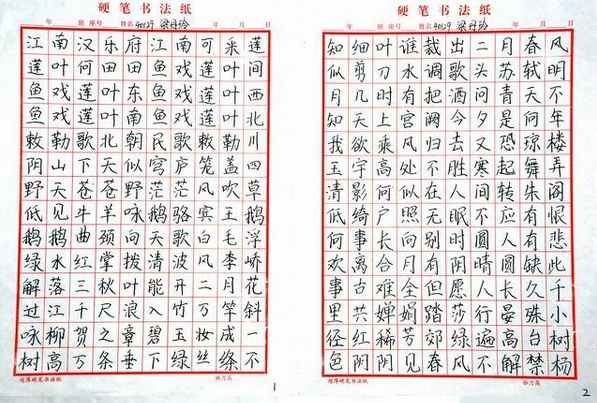 硬笔书法纸
年 班 座号 姓名 40129 梁丹玲 年 月 日
江南汉乐府江南可采莲
莲叶何田田鱼戏莲叶间
鱼戏莲叶东鱼戏莲叶西
鱼戏莲叶南鱼戏莲叶北
敕勒歌北朝民歌敕勒川
阴山下天似穹庐笼盖四
野天苍苍野茫茫风吹草
低见牛羊咏鹅骆宾王鹅
鹅鹅曲颈向天歌白毛浮
绿水红掌拨清波风李峤
解落三秋叶能开二月花
过江千尺浪入竹万竿斜
咏柳贺之章碧玉妆成一
树高万条垂下绿丝绦不
超厚硬笔书法纸 协力高
1
硬笔书法纸
年 班 座号 姓名 40129 梁丹玲 年 月 日
知细叶谁裁出二月春风
似剪刀水调歌头苏轼明
月几时有把酒问青天不
知天上宫阙今夕是何年
我欲乘风归去又恐琼楼
玉宇高处不胜寒起舞弄
清影何似在人间转朱阁
低绮户照无眠不应有恨
何事长向别时圆人有悲
欢离合月有阴晴圆缺此
事古难全但愿人长久千
里共婵娟踏莎行晏殊小
径红稀芳郊绿遍高台树
色阴阴见春风不解禁杨
超厚硬笔书法纸 协力高
2